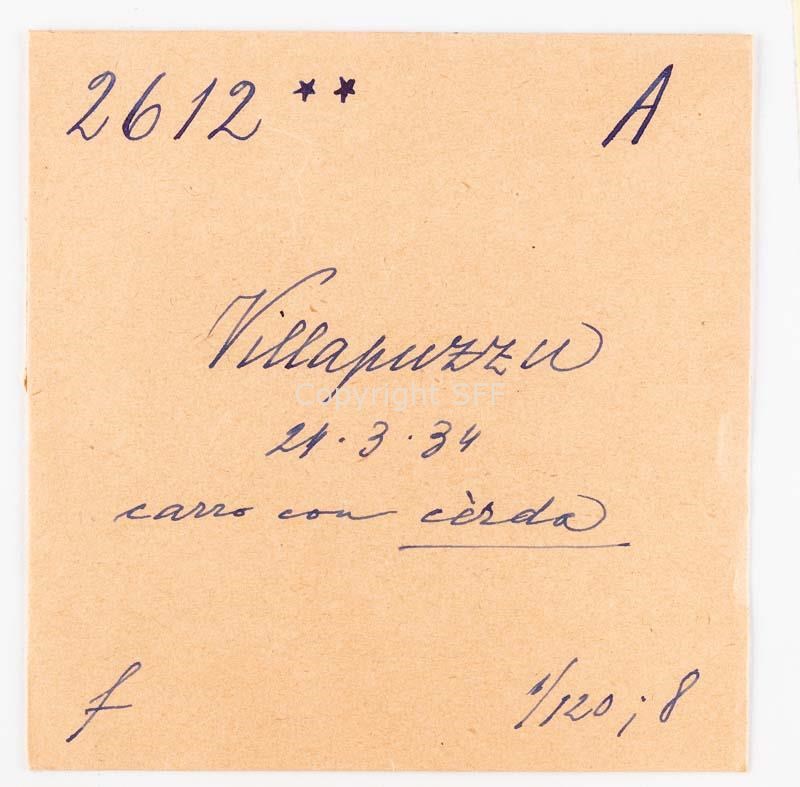 2612 ** A
Villapuzzu
Copyright SFF
21.3.34
carro con cèrda
f 1/120 ; 8